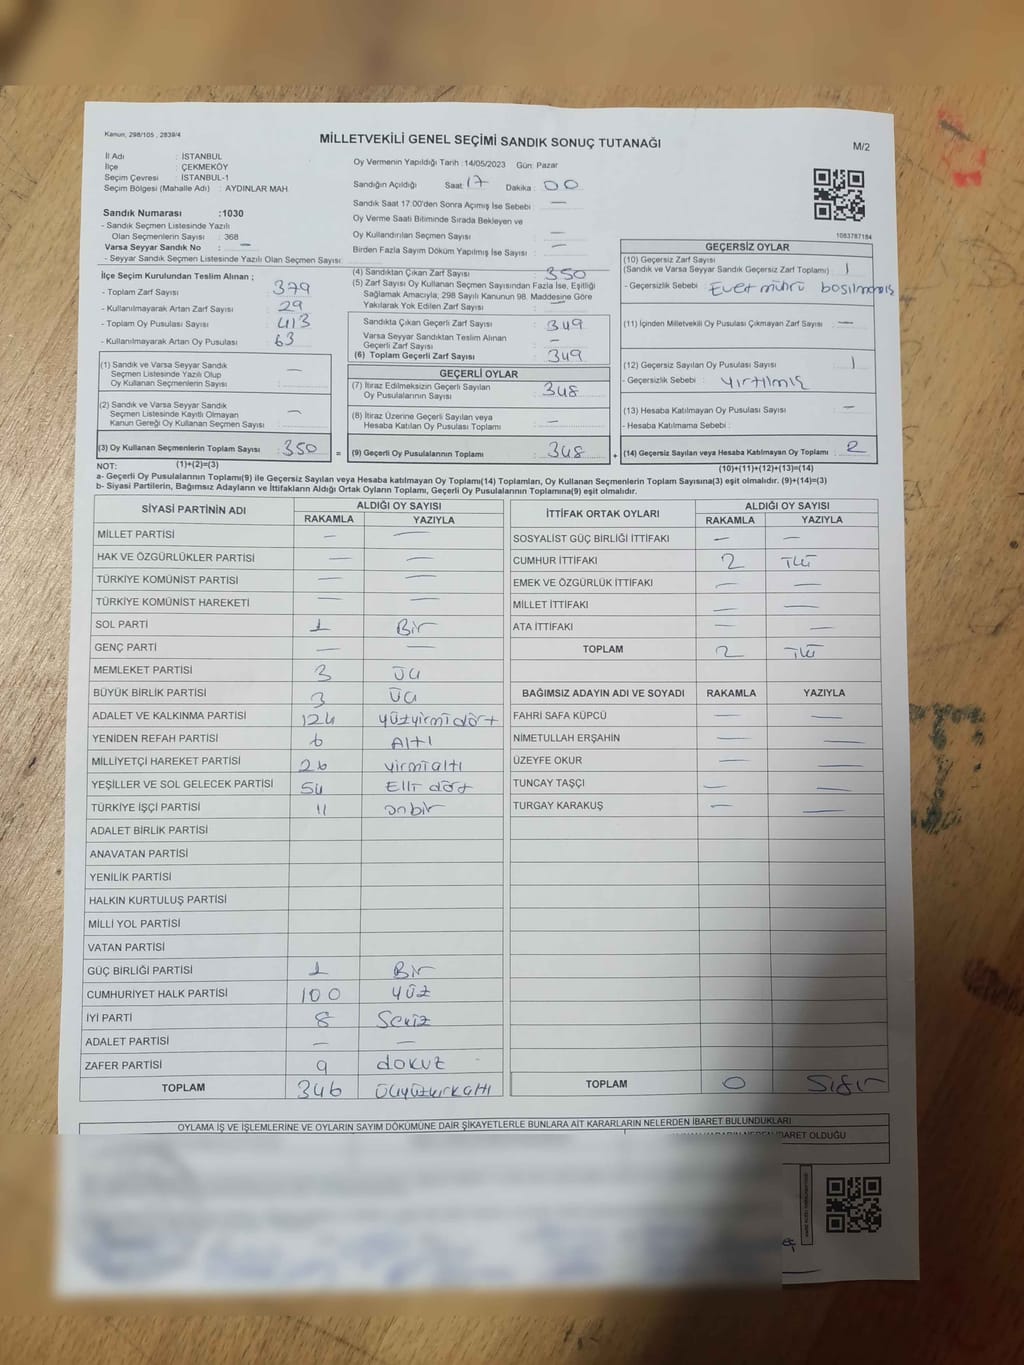 Kanun, 298/105 , 2839/4
MİLLETVEKİLİ GENEL SEÇİMİ SANDIK SONUÇ TUTANAĞI
M/2
İl Adı : İSTANBUL
İlçe : ÇEKMEKÖY
Seçim Çevresi : İSTANBUL-1
Seçim Bölgesi (Mahalle Adı) : AYDINLAR MAH.
Oy Vermenin Yapıldığı Tarih :14/05/2023 Gün: Pazar
Sandığın Açıldığı Saat: 17 Dakika : 00
Sandık Saat 17.00'den Sonra Açımış İse Sebebi : —
Oy Verme Saati Bitiminde Sırada Bekleyen ve
Oy Kullandırılan Seçmen Sayısı : —
Birden Fazla Sayım Döküm Yapılmış İse Sayısı : —
1083787184
Sandık Numarası :1030
- Sandık Seçmen Listesinde Yazılı
Olan Seçmenlerin Sayısı : 368
Varsa Seyyar Sandık No : —
- Seyyar Sandık Seçmen Listesinde Yazılı Olan Seçmen Sayısı:
İlçe Seçim Kurulundan Teslim Alınan ;
- Toplam Zarf Sayısı : 379
- Kullanılmayarak Artan Zarf Sayısı : 29
- Toplam Oy Pusulası Sayısı : 413
- Kullanılmayarak Artan Oy Pusulası : 63
(1) Sandık ve Varsa Seyyar Sandık
Seçmen Listesinde Yazılı Olup
Oy Kullanan Seçmenlerin Sayısı : —
(2) Sandık ve Varsa Seyyar Sandık
Seçmen Listesinde Kayıtlı Olmayan
Kanun Gereği Oy Kullanan Seçmen Sayısı : —
(3) Oy Kullanan Seçmenlerin Toplam Sayısı : 350
(4) Sandıktan Çıkan Zarf Sayısı : 350
(5) Zarf Sayısı Oy Kullanan Seçmen Sayısından Fazla İse, Eşitliği
Sağlamak Amacıyla; 298 Sayılı Kanunun 98. Maddesine Göre
Yakılarak Yok Edilen Zarf Sayısı : —
Sandıkta Çıkan Geçerli Zarf Sayısı : 349
Varsa Seyyar Sandıktan Teslim Alınan
Geçerli Zarf Sayısı : —
(6) Toplam Geçerli Zarf Sayısı : 349
GEÇERLİ OYLAR
(7) İtiraz Edilmeksizin Geçerli Sayılan
Oy Pusulalarının Sayısı : 348
(8) İtiraz Üzerine Geçerli Sayılan veya
Hesaba Katılan Oy Pusulası Toplamı : —
= (9) Geçerli Oy Pusulalarının Toplamı : 348
GEÇERSİZ OYLAR
(10) Geçersiz Zarf Sayısı
(Sandık ve Varsa Seyyar Sandık Geçersiz Zarf Toplamı) : 1
- Geçersizlik Sebebi : Evet mührü basılmamış
(11) İçinden Milletvekili Oy Pusulası Çıkmayan Zarf Sayısı : —
(12) Geçersiz Sayılan Oy Pusulası Sayısı : 1
- Geçersizlik Sebebi : yırtılmış
(13) Hesaba Katılmayan Oy Pusulası Sayısı : —
- Hesaba Katılmama Sebebi :
+ (14) Geçersiz Sayılan veya Hesaba Katılmayan Oy Toplamı : 2
NOT: (1)+(2)=(3) (10)+(11)+(12)+(13)=(14)
a- Geçerli Oy Pusulalarının Toplamı(9) ile Geçersiz Sayılan veya Hesaba Katılmayan Oy Toplamı(14) Toplamları, Oy Kullanan Seçmenlerin Toplam Sayısına(3) eşit olmalıdır. (9)+(14)=(3)
b- Siyasi Partilerin, Bağımsız Adayların ve İttifakların Aldığı Ortak Oyların Toplamı, Geçerli Oy Pusulalarının Toplamına(9) eşit olmalıdır.
SİYASİ PARTİNİN ADI ALDIĞI OY SAYISI
RAKAMLA YAZIYLA
MİLLET PARTİSİ — —
HAK VE ÖZGÜRLÜKLER PARTİSİ — —
TÜRKİYE KOMÜNİST PARTİSİ — —
TÜRKİYE KOMÜNİST HAREKETİ — —
SOL PARTİ 1 Bir
GENÇ PARTİ — —
MEMLEKET PARTİSİ 3 Üç
BÜYÜK BİRLİK PARTİSİ 3 Üç
ADALET VE KALKINMA PARTİSİ 124 yüzyirmidört
YENİDEN REFAH PARTİSİ 6 Altı
MİLLİYETÇİ HAREKET PARTİSİ 26 yirmialtı
YEŞİLLER VE SOL GELECEK PARTİSİ 54 Elli dört
TÜRKİYE İŞÇİ PARTİSİ 11 onbir
ADALET BİRLİK PARTİSİ
ANAVATAN PARTİSİ
YENİLİK PARTİSİ
HALKIN KURTULUŞ PARTİSİ
MİLLİ YOL PARTİSİ
VATAN PARTİSİ
GÜÇ BİRLİĞİ PARTİSİ 1 Bir
CUMHURİYET HALK PARTİSİ 100 yüz
İYİ PARTİ 8 Sekiz
ADALET PARTİSİ — —
ZAFER PARTİSİ 9 dokuz
TOPLAM 346 üçyüzkırkaltı
İTTİFAK ORTAK OYLARI ALDIĞI OY SAYISI
RAKAMLA YAZIYLA
SOSYALİST GÜÇ BİRLİĞİ İTTİFAKI — —
CUMHUR İTTİFAKI 2 İki
EMEK VE ÖZGÜRLÜK İTTİFAKI — —
MİLLET İTTİFAKI — —
ATA İTTİFAKI — —
TOPLAM 2 İki
BAĞIMSIZ ADAYIN ADI VE SOYADI RAKAMLA YAZIYLA
FAHRİ SAFA KÜPCÜ — —
NİMETULLAH ERŞAHİN — —
ÜZEYFE OKUR — —
TUNCAY TAŞÇI — —
TURGAY KARAKUŞ — —
TOPLAM 0 Sıfır
OYLAMA İŞ VE İŞLEMLERİNE VE OYLARIN SAYIM DÖKÜMÜNE DAİR ŞİKAYETLERLE BUNLARA AİT KARARLARIN NELERDEN İBARET BULUNDUKLARI
İBARET OLDUĞU